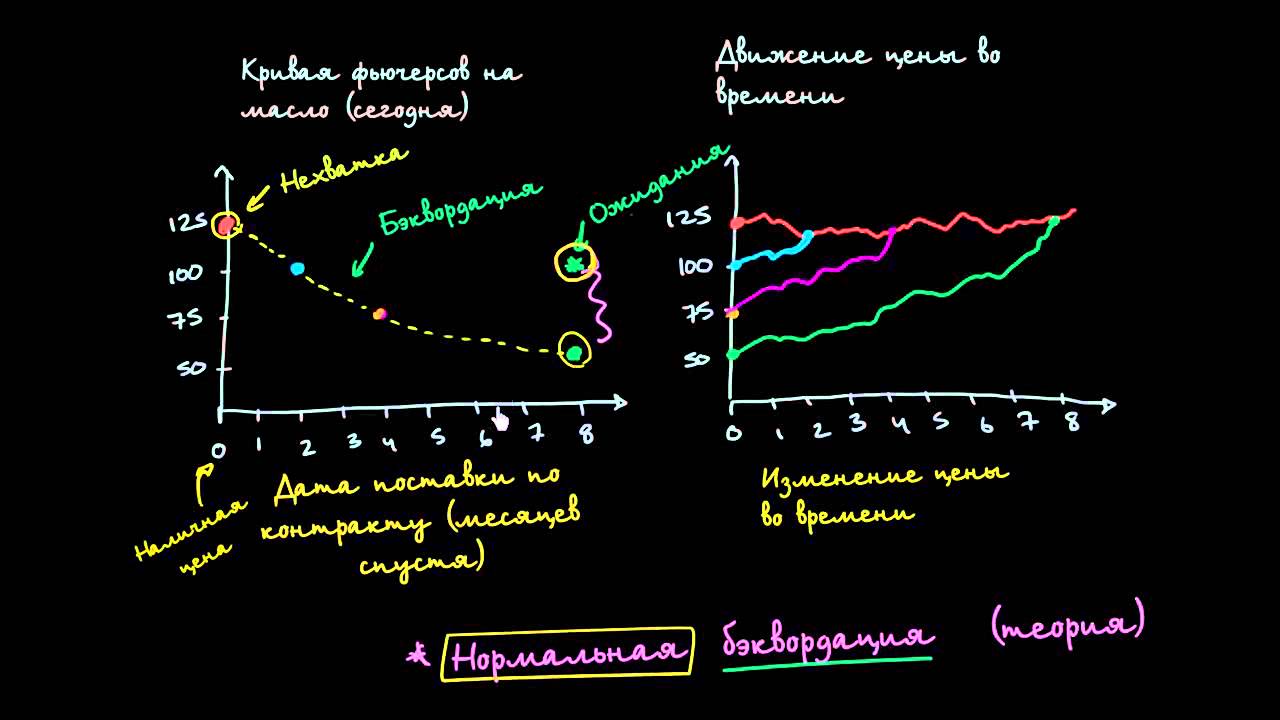 Кривая фьючерсов на
масло (сегодня)
Движение цены во
времени
Нехватка
Бэквордация
Ожидания
125
100
75
50
0 1 2 3 4 5 6 7 8
Наличная
цена
Дата поставки по
контракту (месяцев
спустя)
125
100
75
50
0 1 2 3 4 5 6 7 8
Изменение цены
во времени
* Нормальная бэквордация (теория)